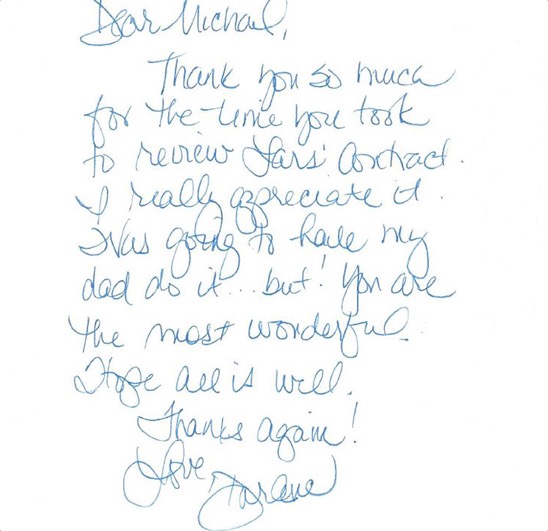 Dear Michael,
Thank you so much
for the time you took
to review Lars' Contract.
I really appreciate it.
I was going to have my
dad do it... but! You are
the most wonderful.
Hope all is well.
Thanks again!
Love,